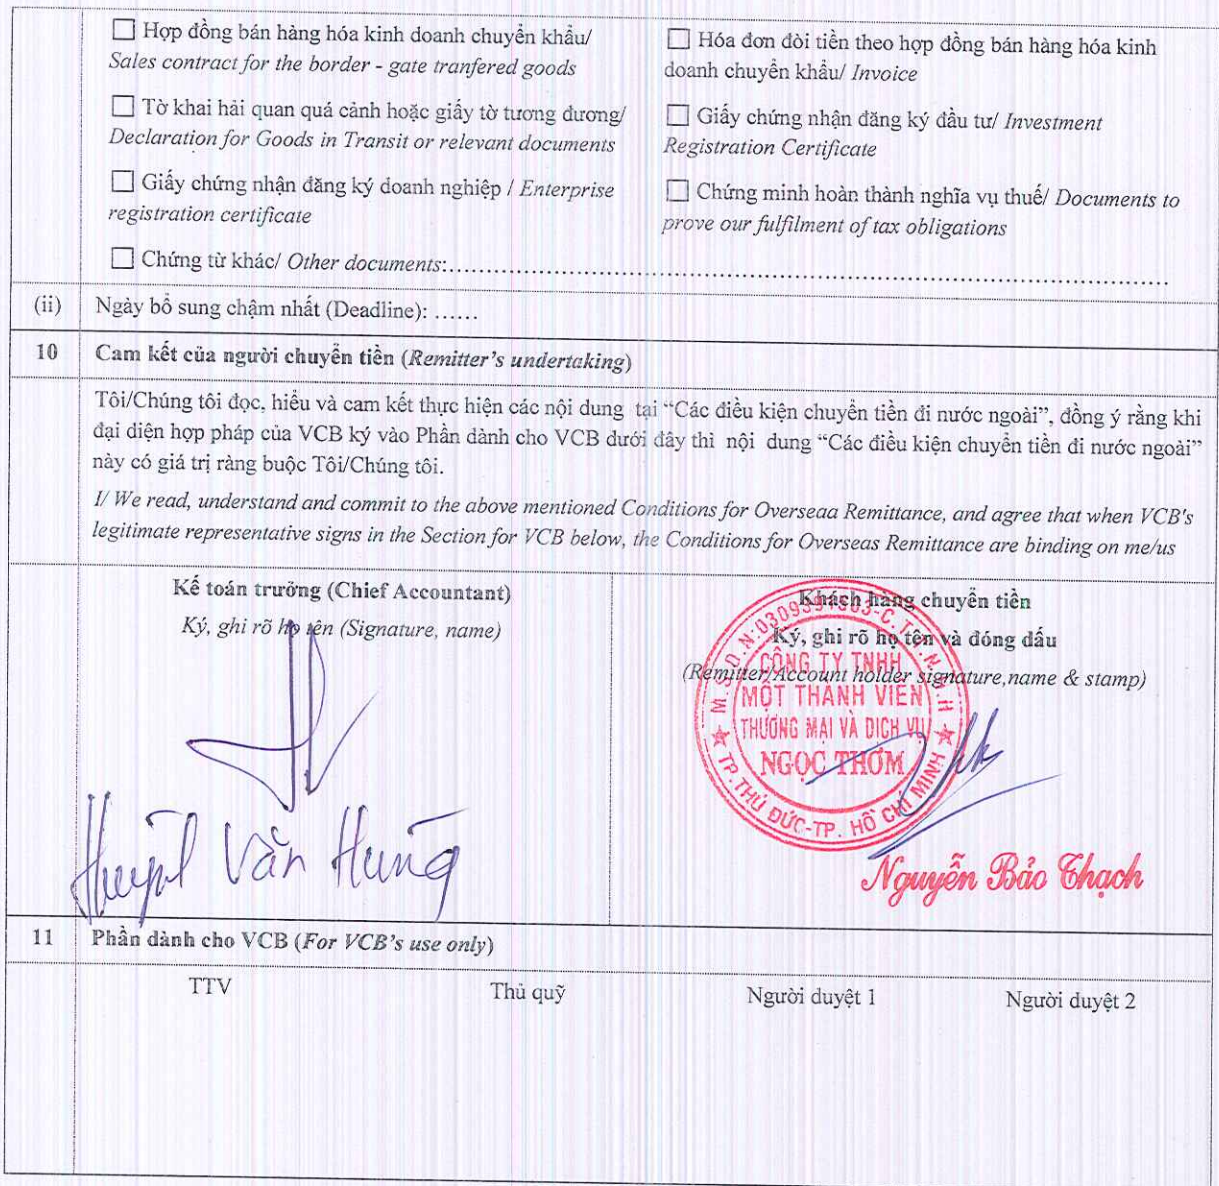 ☐ Hợp đồng bán hàng hóa kinh doanh chuyển khẩu/
Sales contract for the border - gate tranfered goods
☐ Hóa đơn đòi tiền theo hợp đồng bán hàng hóa kinh
doanh chuyển khẩu/ Invoice
☐ Tờ khai hải quan quá cảnh hoặc giấy tờ tương đương/
Declaration for Goods in Transit or relevant documents
☐ Giấy chứng nhận đăng ký đầu tư/ Investment
Registration Certificate
☐ Giấy chứng nhận đăng ký doanh nghiệp / Enterprise
registration certificate
☐ Chứng minh hoàn thành nghĩa vụ thuế/ Documents to
prove our fulfilment of tax obligations
☐ Chứng từ khác/ Other documents:..........
(ii) Ngày bổ sung chậm nhất (Deadline): ......
10 Cam kết của người chuyển tiền (Remitter's undertaking)
Tôi/Chúng tôi đọc, hiểu và cam kết thực hiện các nội dung tại “Các điều kiện chuyển tiền đi nước ngoài”, đồng ý rằng khi
đại diện hợp pháp của VCB ký vào Phần dành cho VCB dưới đây thì nội dung “Các điều kiện chuyển tiền đi nước ngoài”
này có giá trị ràng buộc Tôi/Chúng tôi.
I/ We read, understand and commit to the above mentioned Conditions for Overseaa Remittance, and agree that when VCB's
legitimate representative signs in the Section for VCB below, the Conditions for Overseas Remittance are binding on me/us
Kế toán trưởng (Chief Accountant)
Ký, ghi rõ họ tên (Signature, name)
Huỳnh Văn Hưng
Khách hàng chuyển tiền
Ký, ghi rõ họ tên và đóng dấu
(Remitter/Account holder signature,name & stamp)
CÔNG TY TNHH
MỘT THÀNH VIÊN
THƯƠNG MẠI VÀ DỊCH VỤ
NGỌC THƠM
TP. THỦ ĐỨC-TP. HỒ CHÍ MINH
Nguyễn Bảo Thạch
11 Phần dành cho VCB (For VCB's use only)
TTV Thủ quỹ Người duyệt 1 Người duyệt 2